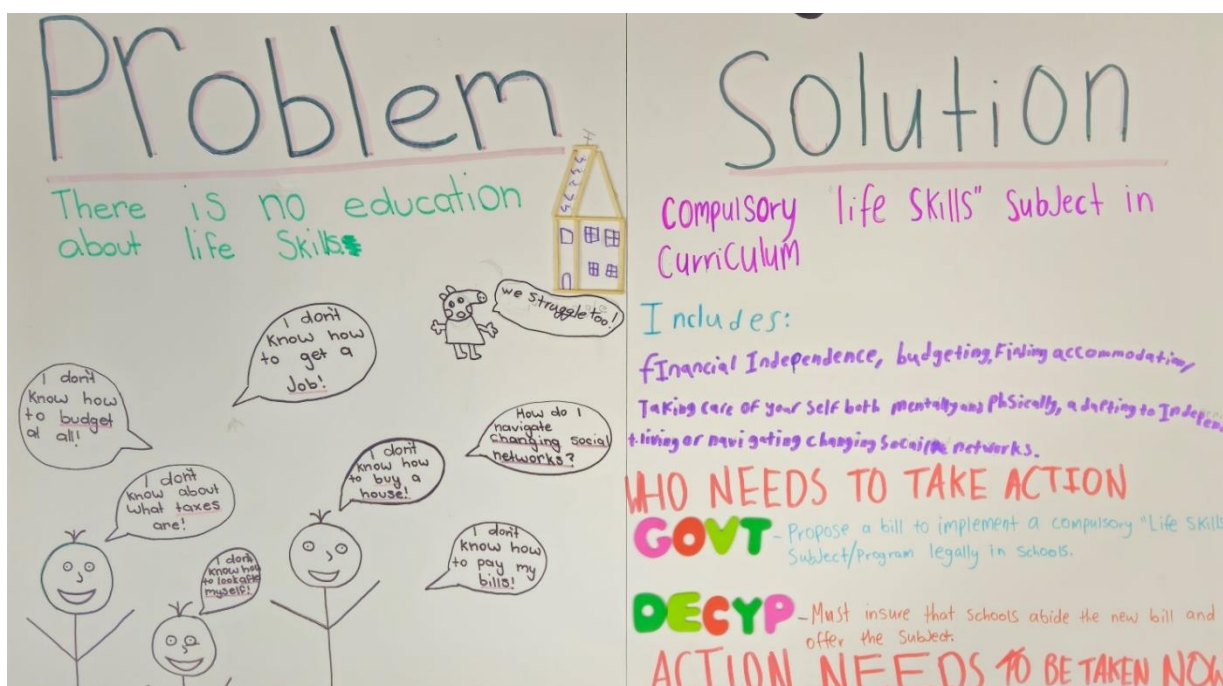 Problem
There is no education
about life Skills.
we struggle too!
I don't
know how
to get a
Job!
I don't
Know how
to budget
at all!
How do I
navigate
changing social
networks?
I don't
know how
to buy a
house!
I don't
know about
what taxes
are!
I don't
know how
to pay my
bills!
I don't
know how
to look afte
myself!
Solution
Compulsory life Skills" Subject in
Curriculum
Includes:
fInancial Independence, budgeting, Finding accommodation,
Taking care of your self both mentally and Phsically, adapting to Indepen
t living or navigating changing Socail networks.
WHO NEEDS TO TAKE ACTION
GOVT - Propose a bill to implement a compulsory "Life Skills
Subject/Program legally in schools.
DECYP - Must insure that schools abide the new bill and
offer the Subject.
ACTION NEEDS TO BE TAKEN NOW